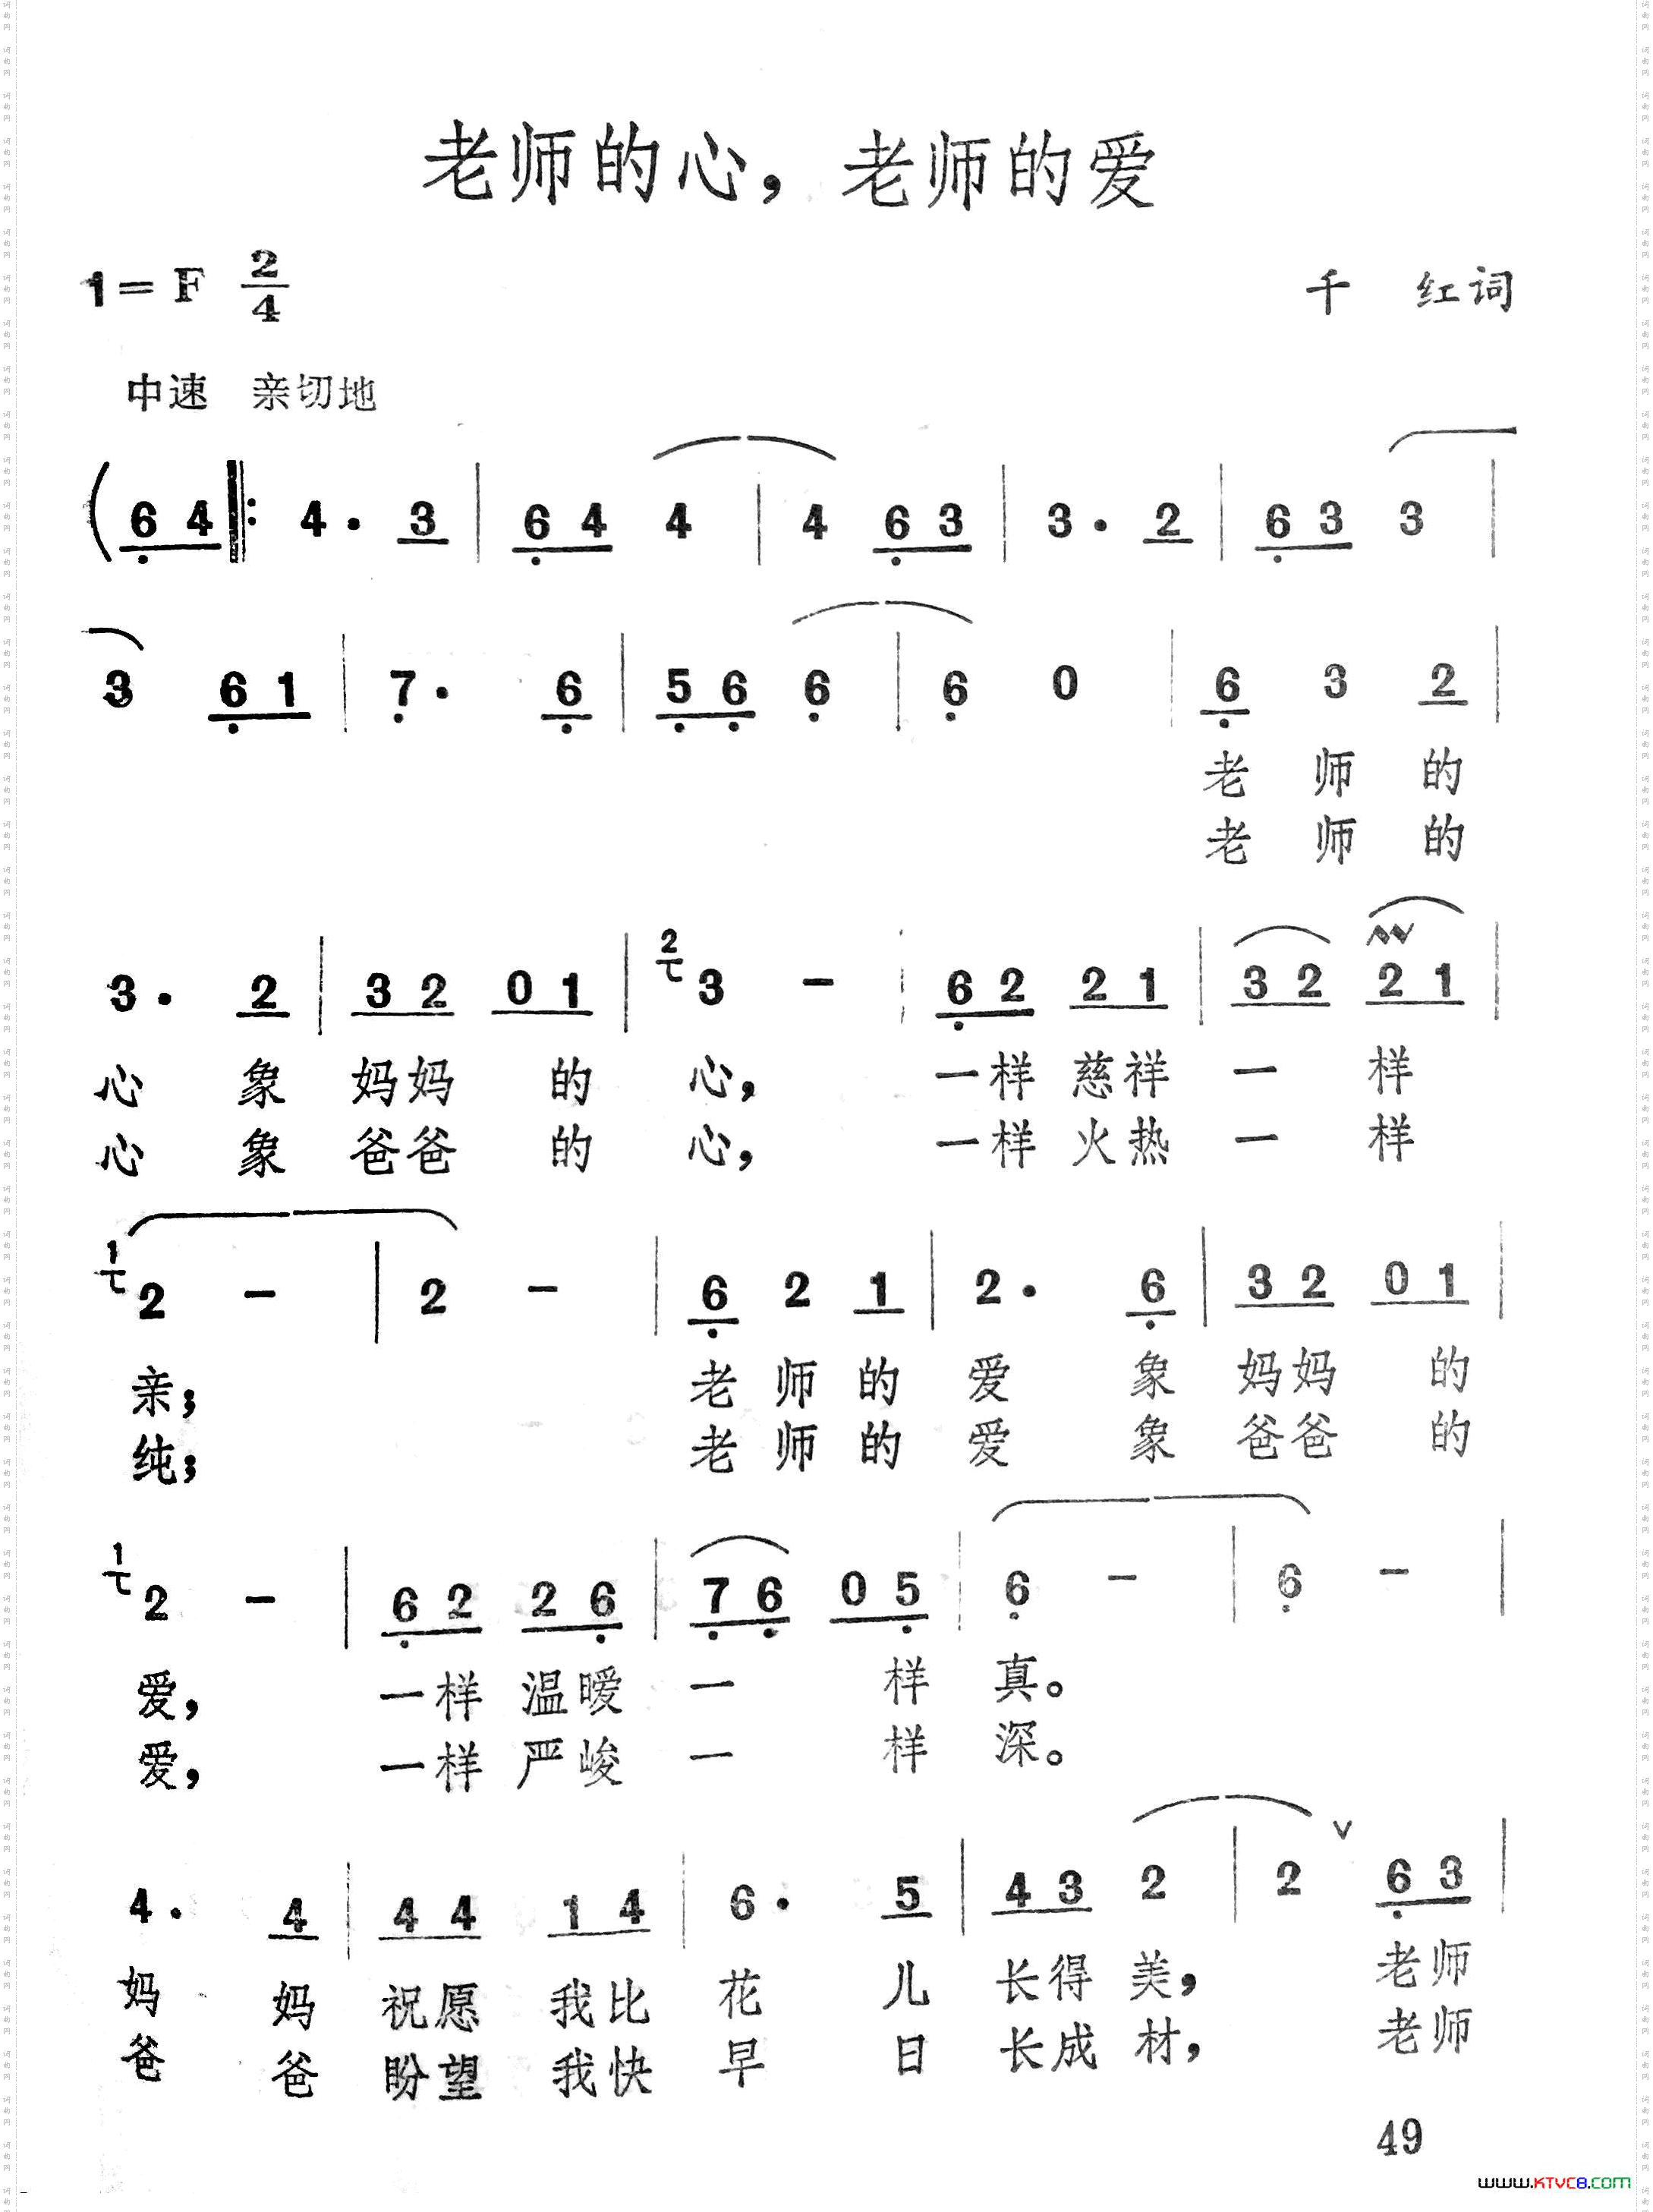 老师的心，老师的爱
1=F 2/4
千 红词
中速 亲切地
( 6 4 |: 4 . 3 | 6 4 4 | 4 6 3 | 3 . 2 | 6 3 3 |
3 6 1 | 7 . 6 | 5 6 6 | 6 0 | 6 3 2 |
老 师 的
老 师 的
3 . 2 | 3 2 0 1 | 2 3 - | 6 2 2 1 | 3 2 2 1 |
心 象 妈妈 的 心， 一样 慈祥 一 样
心 象 爸爸 的 心， 一样 火热 一 样
1 2 - | 2 - | 6 2 1 | 2 . 6 | 3 2 0 1 |
亲； 老 师 的 爱 象 妈妈 的
纯； 老 师 的 爱 象 爸爸 的
1 2 - | 6 2 2 6 | 7 6 0 5 | 6 - | 6 - |
爱， 一样 温暖 一 样 真。
爱， 一样 严峻 一 样 深。
4 . 4 | 4 4 1 4 | 6 . 5 | 4 3 2 | 2 ∨ 6 3 |
妈 妈 祝愿 我比 花 儿 长得 美， 老师
爸 爸 盼望 我快 早 日 长成 材， 老师
49
www.KTVC8.COM